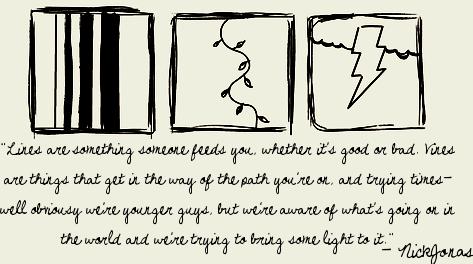 "Lines are something someone feeds you, whether it's good or bad. Vines
are things that get in the way of the path you're on, and trying times-
well obviousy we're younger guys, but we're aware of what's going on in
the world and we're trying to bring some light to it."
- NickJonas